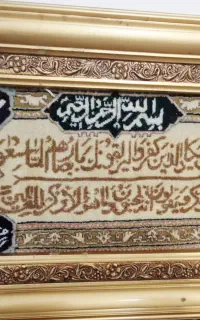 بسم الله الرحمن الرحيم
يكاد الذين كفروا ليزلقونك بابصارهم لما سمعوا
ويقولون انه لمجنون وما هو الا ذكر للعالمين